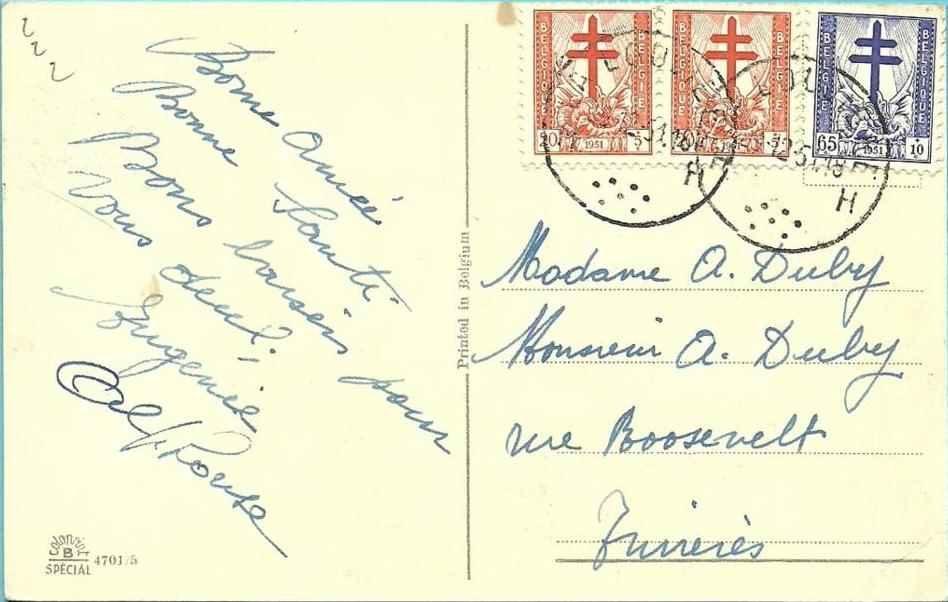 222
Bonne Année
Bonne Santé
Bons baisers pour
Vous deux.
Eugénie
Alf Rouse
Printed in Belgium
B
SPÉCIAL 4701/5
BELGIE BELGIQUE
20 1951 5
BELGIE BELGIQUE
20 1951 5
BELGIE BELGIQUE
65 1951 10
H
H
Madame A. Duby
Monsieur A. Duby
rue Boosevelt